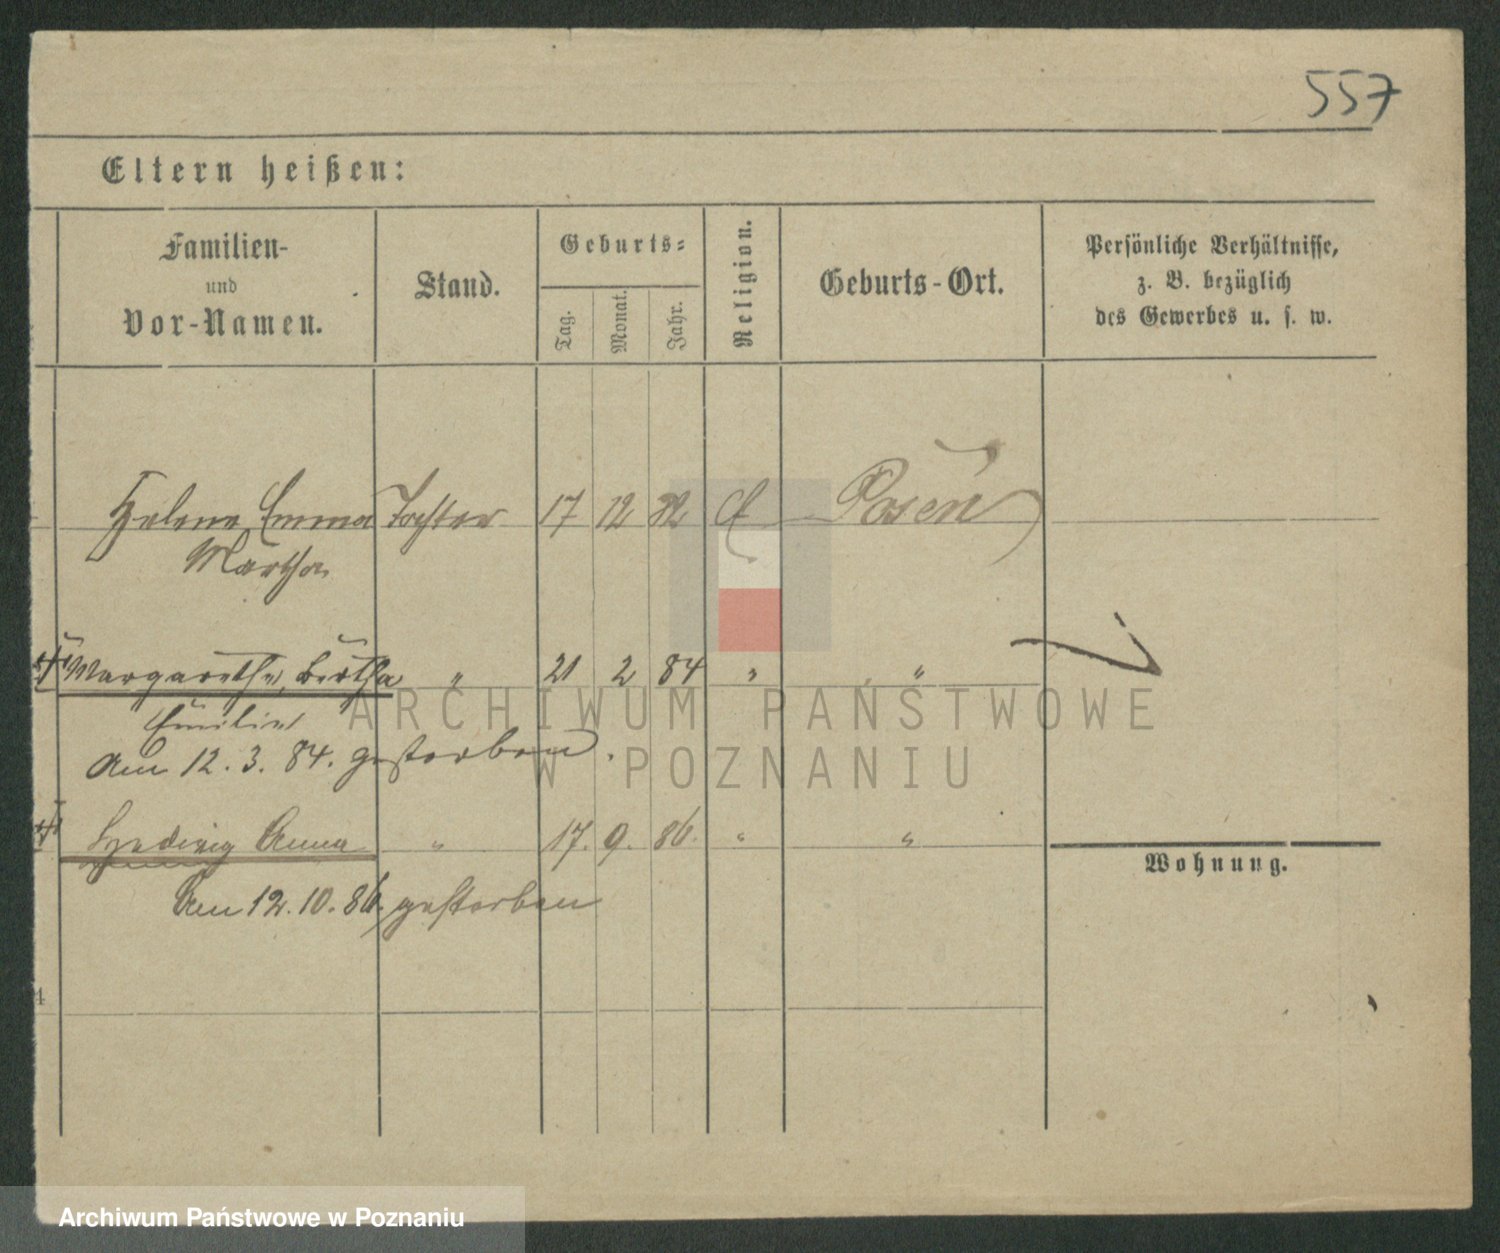 557
Eltern heißen:
Familien-
und
Vor-Namen.
Stand.
Geburts-
Tag.
Monat.
Jahr.
Religion.
Geburts-Ort.
Persönliche Verhältnisse,
z. B. bezüglich
des Gewerbes u. s. w.
Helene Emma Tochter 17 12 82 Posen
Martha
Margarethe, Bertha " 21 2 84 " "
Emilie
Am 12. 3. 84. gestorben.
Hedwig Anna " 17. 9. 86. " "
Am 12. 10. 86. gestorben
Wohnung.
4
ARCHIWUM PAŃSTWOWE
W POZNANIU
Archiwum Państwowe w Poznaniu